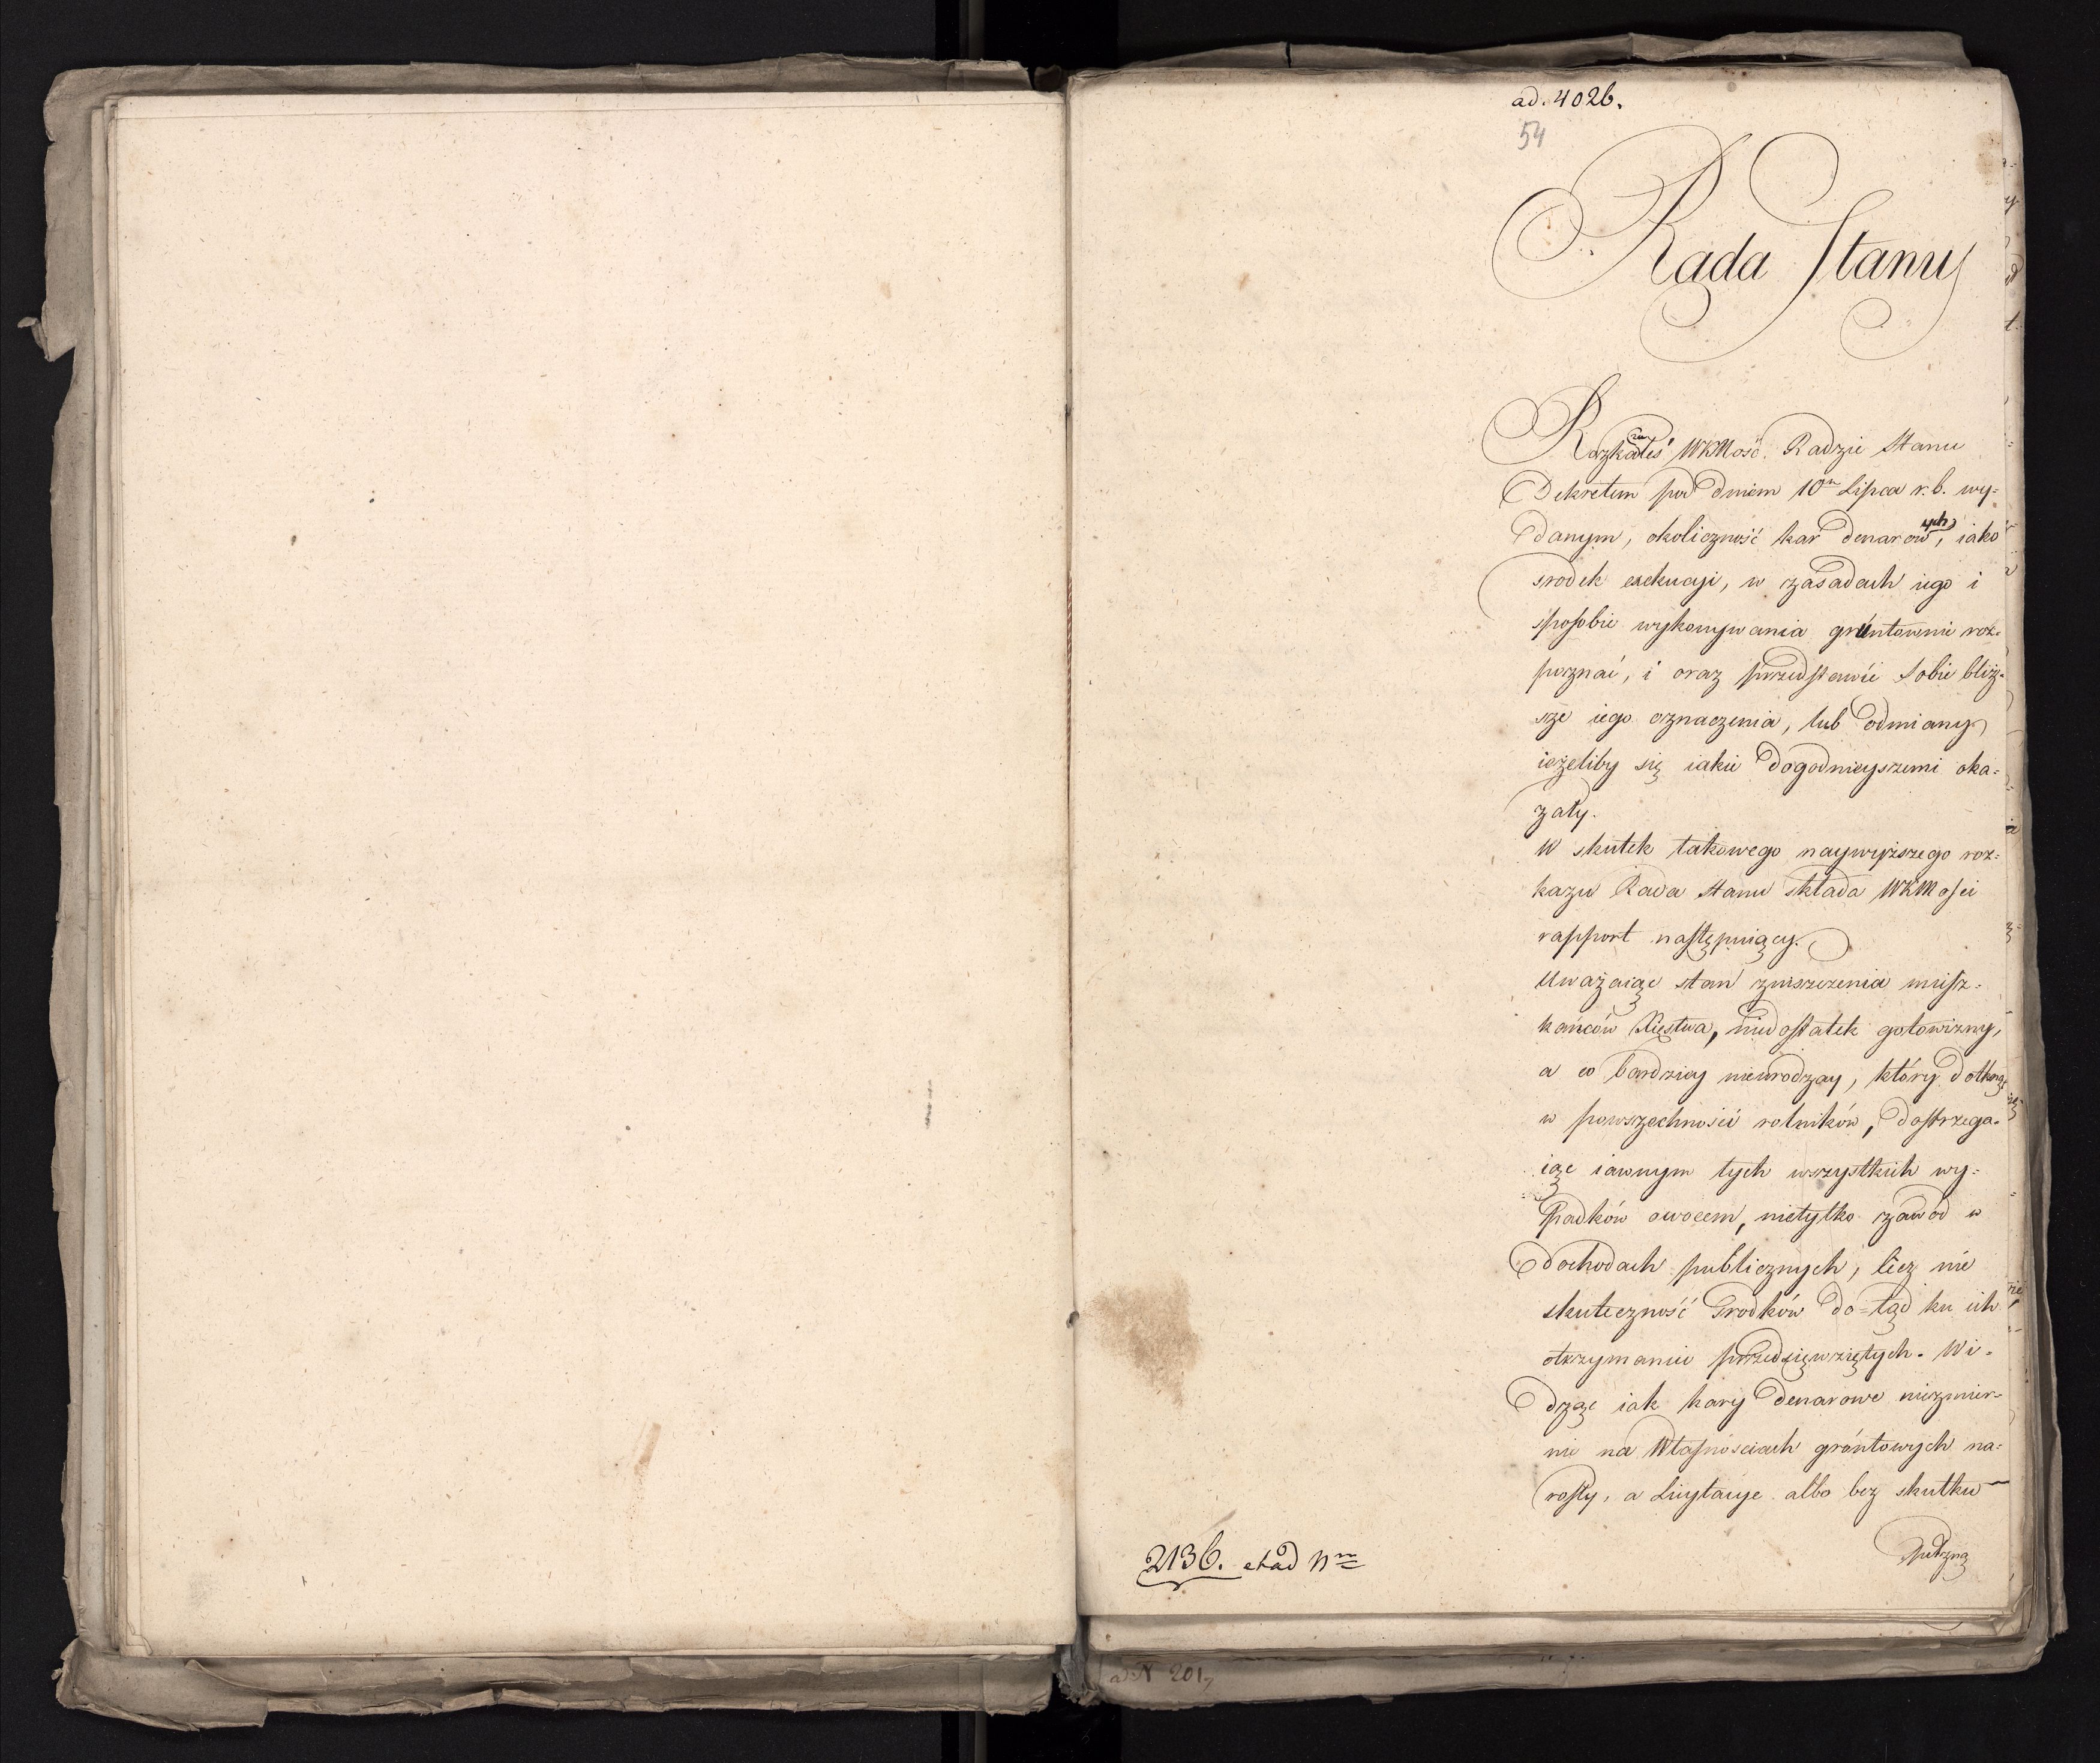 ad. 4026.
54
Rada Stanu
Rozkazałeś WKMość Radzie Stanu
Dekretem pod dniem 10m Lipca r. b. wy=
danym, okoliczność kar denarowych, iako
srodek exekucyi, w zasadach iego i
sposobie wykonywania gruntownie roz=
poznać, i oraz przedstawić sobie bliż=
sze iego oznaczenia, lub odmiany
ieżeliby się iakie dogodnieyszemi oka=
zały.
W skutek takowego naywyższego roz=
kazu Rada Stanu składa WKMości
rapport następuiący.
Uważaiąc stan zniszczenia miesz=
kańców Xięstwa, niedostatek gotowizny,
a co bardziey nieurodzay, który dotknął
w powszechności rolników, dostrzega=
iąc iawnym tych wszystkich wy=
padków owocem, nietylko zawód w
dochodach publicznych, lecz nie
skuteczność srodków do=tąd ku ich
otrzymaniu przedsięwziętych. Wi=
dząc iak kary denarowe niezmier=
nie na Własnościach gróntowych na=
rosły, a Licytacye albo bez skutku
2136. et ad Nm
ad N 201